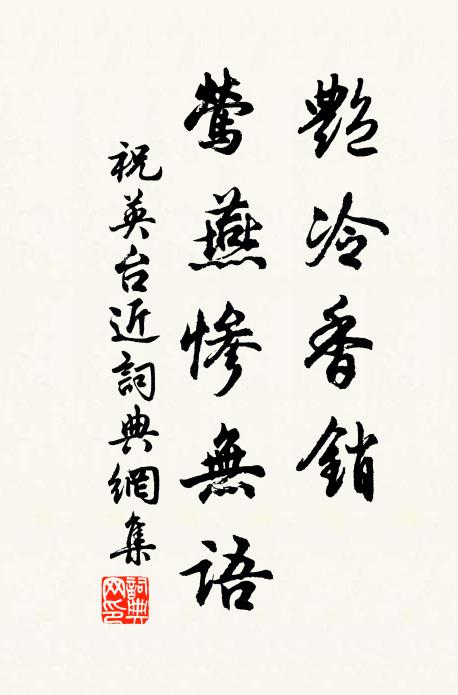 艷冷香銷
鶯燕慘無語
祝英台近詞典網集
詞典
网印